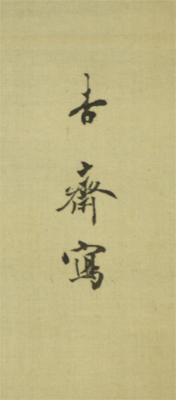 杏齋寫